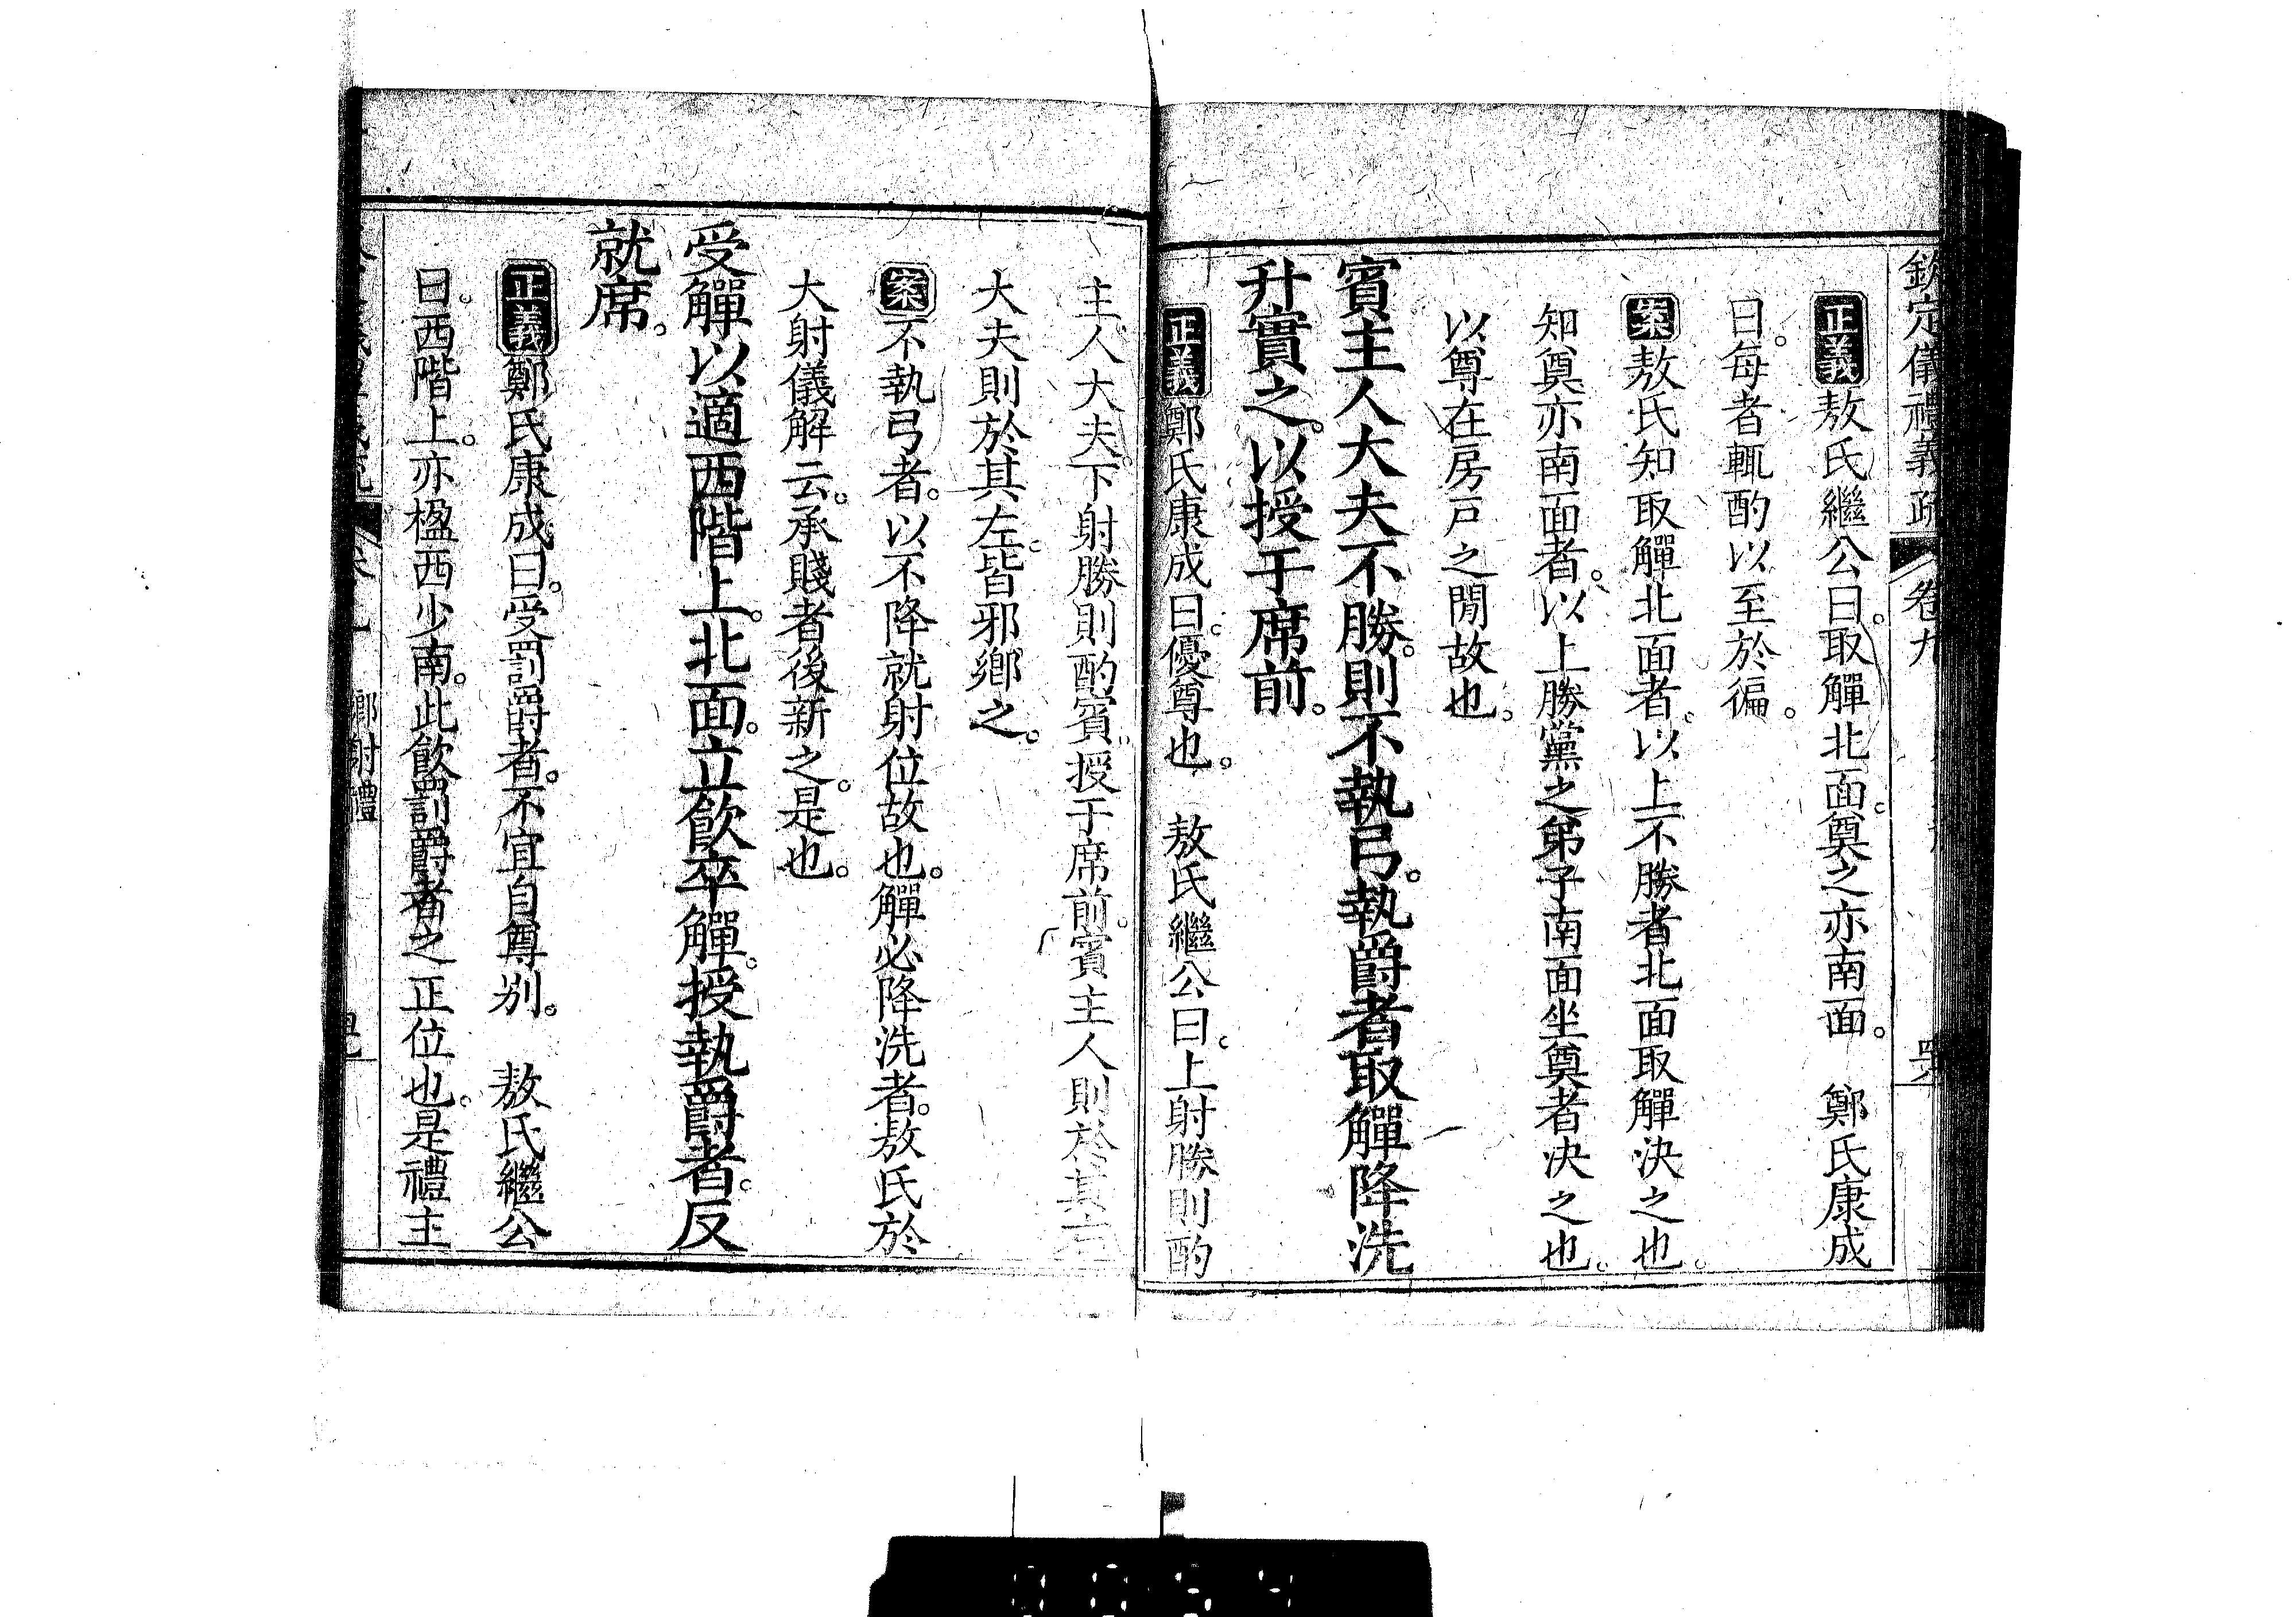 欽定儀禮義疏 卷九
正義敖氏繼公曰。取觶北面。奠之亦南面。 鄭氏康成
曰。每者輒酌以至於徧。
案敖氏知取觶北面者。以上不勝者北面取觶決之也。
知奠亦南面者。以上勝黨之弟子南面坐奠者決之也。
以尊在房戸之閒故也。
賓主人大夫不勝。則不執弓。執爵者取觶降洗
升實之。以授于席前。
正義鄭氏康成曰。優尊也。 敖氏繼公曰。上射勝則酌
主人大夫。下射勝則酌賓。授于席前。賓主人則於其右
大夫則於其左。皆邪鄉之。
案不執弓者。以不降就射位故也。觶必降洗者。敖氏於
大射儀解云。承賤者後新之。是也。
受觶以適西階上。北面。立飲卒觶。授執爵者。反
就席。
正義鄭氏康成曰。受罰爵者。不宜自尊别。 敖氏繼公
曰。西階上。亦楹西少南。此飲罰爵者之正位也。是禮主
鄉射禮